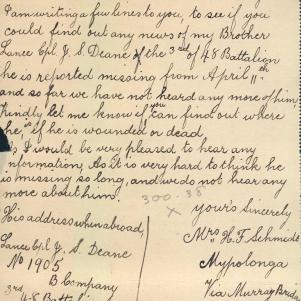 I am writing a few lines to you, to see if you
could find out any news of my Brother
Lance Cpl J. S. Deane of the 3rd of 48 Battalion
he is reported missing from April 11th
and so far we have not heard any more of him
Kindly let me know if you can find out where
he is, if he is wounded or dead
I would be very pleased to hear any
information. As it is very hard to think he
is missing so long, and we do not hear any
more about him.
300-35
X
yours Sincerely
His address when abroad,
Mrs H. F. Schmidt
Lance Cpl J. S. Deane
Mypolonga
No 1905
B Company
Via Murray Bridge
3rd
48 Battalion